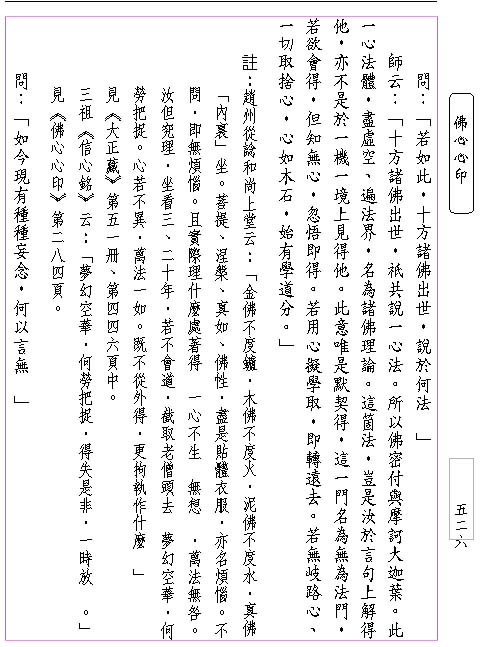 佛心心印
五二六
問：「若如此，十方諸佛出世，說於何法　」
師云：「十方諸佛出世，祇共說一心法。所以佛密付與摩訶大迦葉。此
一心法體，盡虛空、遍法界，名為諸佛理論。這箇法，豈是汝於言句上解得
他，亦不是於一機一境上見得他。此意唯是默契得，這一門名為無為法門，
若欲會得，但知無心，忽悟即得。若用心擬學取，即轉遠去。若無岐路心、
一切取捨心，心如木石，始有學道分。」
註：趙州從諗和尚上堂云：「金佛不度鑪，木佛不度火，泥佛不度水，真佛
「內裏」坐。菩提、涅槃、真如、佛性，盡是貼體衣服，亦名煩惱。不
問，即無煩惱。且實際理什麼處著得　一心不生　無想　，萬法無咎。
汝但究理，坐看三、二十年，若不會道，截取老僧頭去　夢幻空華，何
勞把捉。心若不異，萬法一如。既不從外得，更拘執作什麼　」
見《大正藏》第五一冊、第四四六頁中。
三祖《信心銘》云：「夢幻空華，何勞把捉，得失是非，一時放　。」
見《佛心心印》第二八四頁。
問：「如今現有種種妄念，何以言無　」